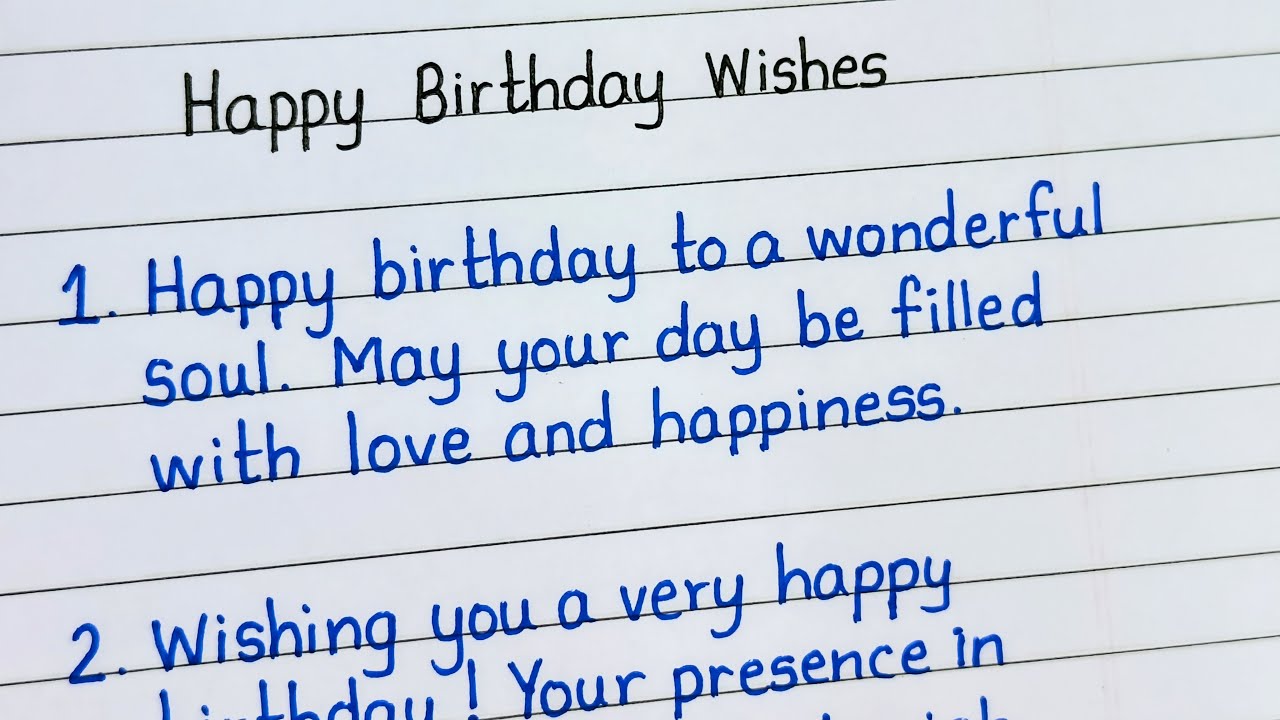 Happy Birthday Wishes
1. Happy birthday to a wonderful
soul. May your day be filled
with love and happiness.
2. Wishing you a very happy
birthday! Your presence in